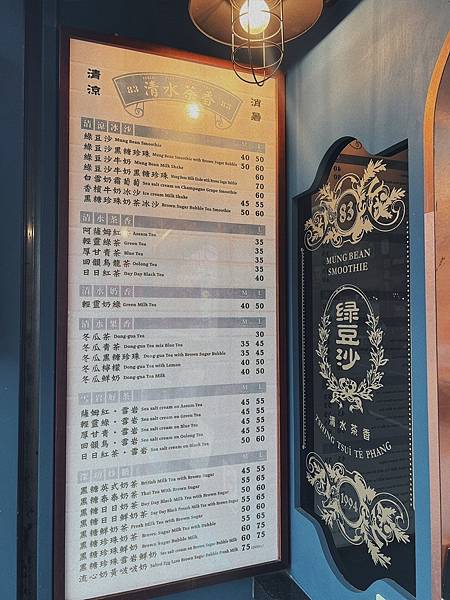 清涼
消暑
83 清水茶香 83
清涼冰沙 M L
綠豆沙 Mung Bean Smoothie 40 50
綠豆沙黑糖珍珠 Mung Bean Smoothie with Brown Sugar Bubble 50 60
綠豆沙牛奶 Mung Bean Milk Shake 50 60
綠豆沙牛奶黑糖珍珠 60
白雪奶霜葡萄 Sea salt cream on Champagne Grape Smoothie 70
香檳牛奶冰沙 Ice cream Milk Shake 60
黑糖珍珠奶茶冰沙 Brown Sugar Bubble Tea Smoothie 50 60
清水茶香 M L
阿薩姆紅 Assam Tea 35
輕靈綠茶 Green Tea 35
厚甘青茶 Blue Tea 35
回韻烏龍茶 Oolong Tea 35
日日紅茶 Day Day Black Tea 40
清水奶香 M L
輕靈奶綠 Green Milk Tea 40 50
清水果香 M L
冬瓜茶 Dong-gua Tea 30
冬瓜青茶 Dong-gua Tea mix Blue Tea 35 45
冬瓜黑糖珍珠 Dong-gua Tea with Brown Sugar Bubble 35 45
冬瓜檸檬 Dong-gua Tea with Lemon 40 50
冬瓜鮮奶 Dong-gua Tea Milk 40 50
M L
薩姆紅・雪岩 Sea salt cream on Assam Tea 45 55
輕靈綠・雪岩 Sea salt cream on Green Tea 45 55
厚甘青・雪岩 Sea salt cream on Blue Tea 45 55
回韻烏・雪岩 Sea salt cream on Oolong Tea 45 55
日日紅茶・雪岩 Sea salt cream on Black Tea 50 60
M L
黑糖英式奶茶 British Milk Tea with Brown Sugar 45 55
黑糖泰泰奶茶 Thai Tea With Brown Sugar 45 55
黑糖日日奶茶 Day Day Black Milk Tea with Brown Sugar 50 60
黑糖日日鮮奶茶 Day Day Black Fresh Milk Tea with Brown Sugar 55 65
黑糖鮮奶茶 Fresh Milk Tea with Brown Sugar 55 65
黑糖珍珠奶茶 55 65
黑糖珍珠鮮奶 Brown Sugar Bubble Milk 60 75
黑糖珍珠雪岩鮮奶 Sea salt cream on Brown Sugar Bubble Fresh Milk 60 75
流心奶黃啵啵奶 75
83
MUNG BEAN
SMOOTHIE
绿豆沙
清水茶香
TSHING TSUÍ TÊ PHANG
1994